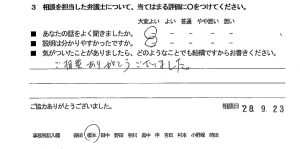 3 相談を担当した弁護士について、当てはまる評価に○をつけてください。
大変よい よい 普通 やや悪い 悪い
■ あなたの話をよく聞きましたか。
■ 説明は分かりやすかったですか。
■ 気がついたことがありましたら、どのようなことでも結構ですからお書きください。
ご相談ありがとうございました。
ご協力ありがとうございました。
相談日 28.9.23
事務所記入欄